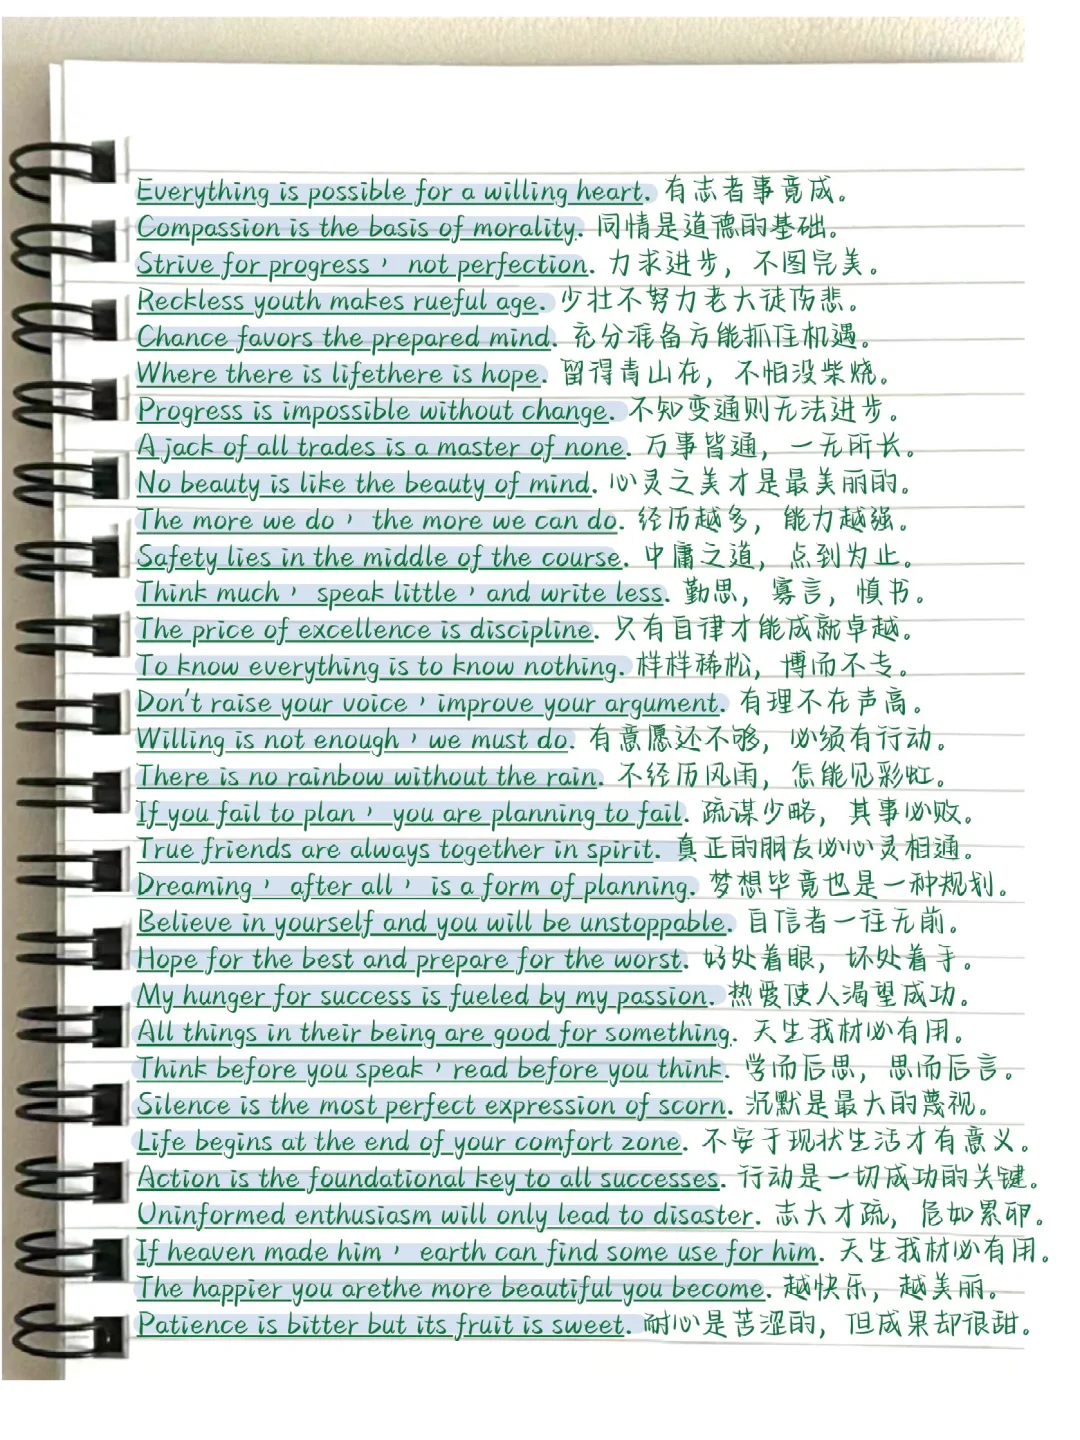 Everything is possible for a willing heart. 有志者事竟成。
Compassion is the basis of morality. 同情是道德的基础。
Strive for progress， not perfection. 力求进步，不图完美。
Reckless youth makes rueful age. 少壮不努力老大徒伤悲。
Chance favors the prepared mind. 充分准备方能抓住机遇。
Where there is lifethere is hope. 留得青山在，不怕没柴烧。
Progress is impossible without change. 不知变通则无法进步。
A jack of all trades is a master of none. 万事皆通，一无所长。
No beauty is like the beauty of mind. 心灵之美才是最美丽的。
The more we do， the more we can do. 经历越多，能力越强。
Safety lies in the middle of the course. 中庸之道，点到为止。
Think much， speak little，and write less. 勤思，寡言，慎书。
The price of excellence is discipline. 只有自律才能成就卓越。
To know everything is to know nothing. 样样稀松，博而不专。
Don't raise your voice，improve your argument. 有理不在声高。
Willing is not enough，we must do. 有意愿还不够，必须有行动。
There is no rainbow without the rain. 不经历风雨，怎能见彩虹。
If you fail to plan， you are planning to fail. 疏谋少略，其事必败。
True friends are always together in spirit. 真正的朋友必心灵相通。
Dreaming， after all， is a form of planning. 梦想毕竟也是一种规划。
Believe in yourself and you will be unstoppable. 自信者一往无前。
Hope for the best and prepare for the worst. 好处着眼，坏处着手。
My hunger for success is fueled by my passion. 热爱使人渴望成功。
All things in their being are good for something. 天生我材必有用。
Think before you speak，read before you think. 学而后思，思而后言。
Silence is the most perfect expression of scorn. 沉默是最大的蔑视。
Life begins at the end of your comfort zone. 不安于现状生活才有意义。
Action is the foundational key to all successes. 行动是一切成功的关键。
Uninformed enthusiasm will only lead to disaster. 志大才疏，危如累卵。
If heaven made him， earth can find some use for him. 天生我材必有用。
The happier you arethe more beautiful you become. 越快乐，越美丽。
Patience is bitter but its fruit is sweet. 耐心是苦涩的，但成果却很甜。